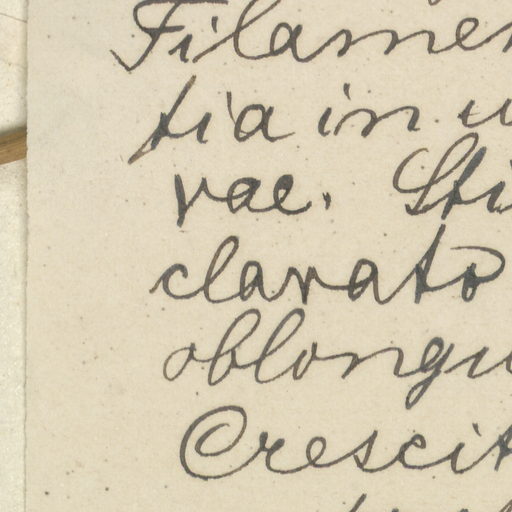 Filamen
tia in u
vae. Sti
clavato
oblongu
Crescit